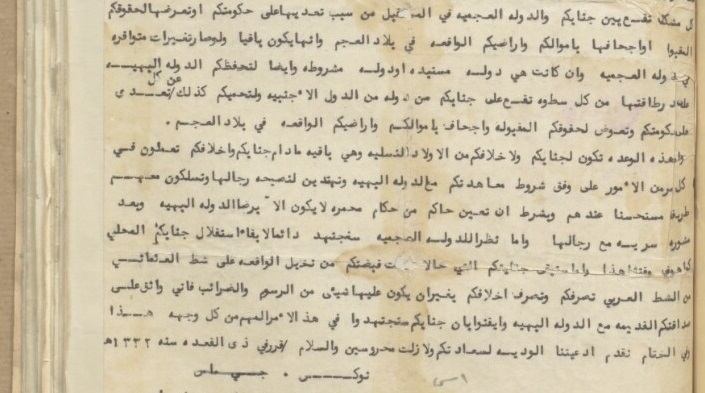 كل مشكل تقع بين جنابكم والدوله العجميه في المستقبل من سبب تعديها على حكومتكم او تعرضها لحقوقكم
المقبوله او اجحافها باموالكم واراضيكم الواقعه في بلاد العجم وانها يكون باقيا ولو صار تغيرات متوافره
في دوله العجميه وان كانت هي دوله مستبده او دوله مشروطه وايضا لتحفظكم الدوله البهيه
على قدر طاقتها من كل سطوه تقع على جنابكم من دوله من الدول الاجنبيه ولتحميكم كذلك عن كل تعدى
على حكومتكم وتعرض لحقوقكم المقبوله واجحاف باموالكم واراضيكم الواقعه في بلاد العجم .
وهذه الوعده تكون لجنابكم ولاخلافكم من الاولاد النسليه وهي باقيه مادام جنابكم واخلافكم تعملون في
كل امر من الامور على وفق شروط معاهدتكم مع الدوله البهيه وتهتدين لنصيحه رجالها وتسلكون معهم
طريقه مستحسنا عندهم وبشرط ان تعين حاكم من حكام محمره لا يكون الا برضا الدوله البهيه وبعد
مشوره سريه مع رجالها واما نظرا للدوله العجميه سنجتهد دائما لابقاء استقلال جنابكم المحلي
كما هو في وقتنا هذا واما جنابكم التي حالا تحت قبضتكم من نخيل الواقعه على شط العثماني
من الشط العربي تصرفكم وتصرف اخلافكم بغير ان يكون عليها شيئى من الرسوم والضرائب فاني واثق على
صداقتكم القديمه مع الدوله البهيه وايضا بان جنابكم ستجتهدوا في هذا الامر المهم من كل وجهه هذا
وفي الختام نقدم ادعيتنا الوديه لسعادتكم ولا زلت محروسين والسلام / قرر في ذى القعده سنه ١٣٣٢ه
نوكس . جي